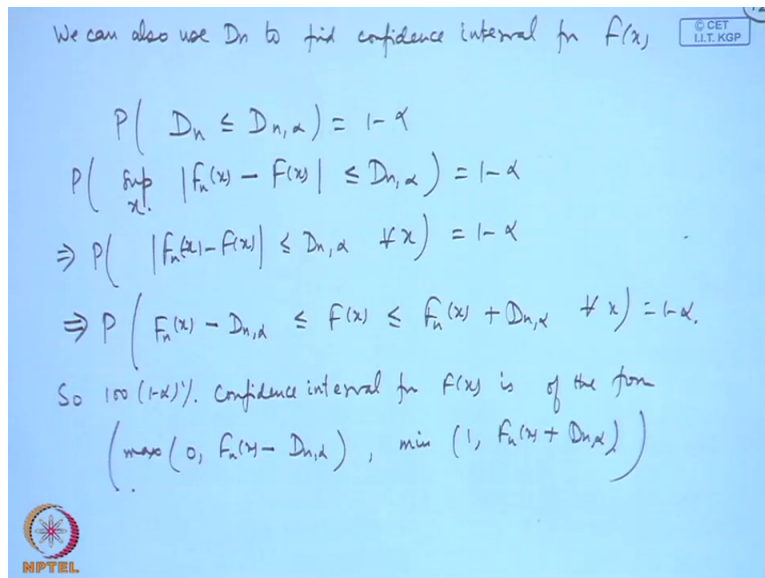 We can also use Dn to find confidence interval for F(x)
© CET
I.I.T. KGP
P( Dn ≤ Dn,α ) = 1-α
P( sup |Fn(x) - F(x)| ≤ Dn,α ) = 1-α
x.
⇒ P( |Fn(x) - F(x)| ≤ Dn,α ∀ x ) = 1-α
⇒ P( Fn(x) - Dn,α ≤ F(x) ≤ Fn(x) + Dn,α ∀ x ) = 1-α.
So 100 (1-α)%. Confidence interval for F(x) is of the form
( max (0, Fn(x) - Dn,α ) , min (1, Fn(x) + Dn,α ) )
NPTEL